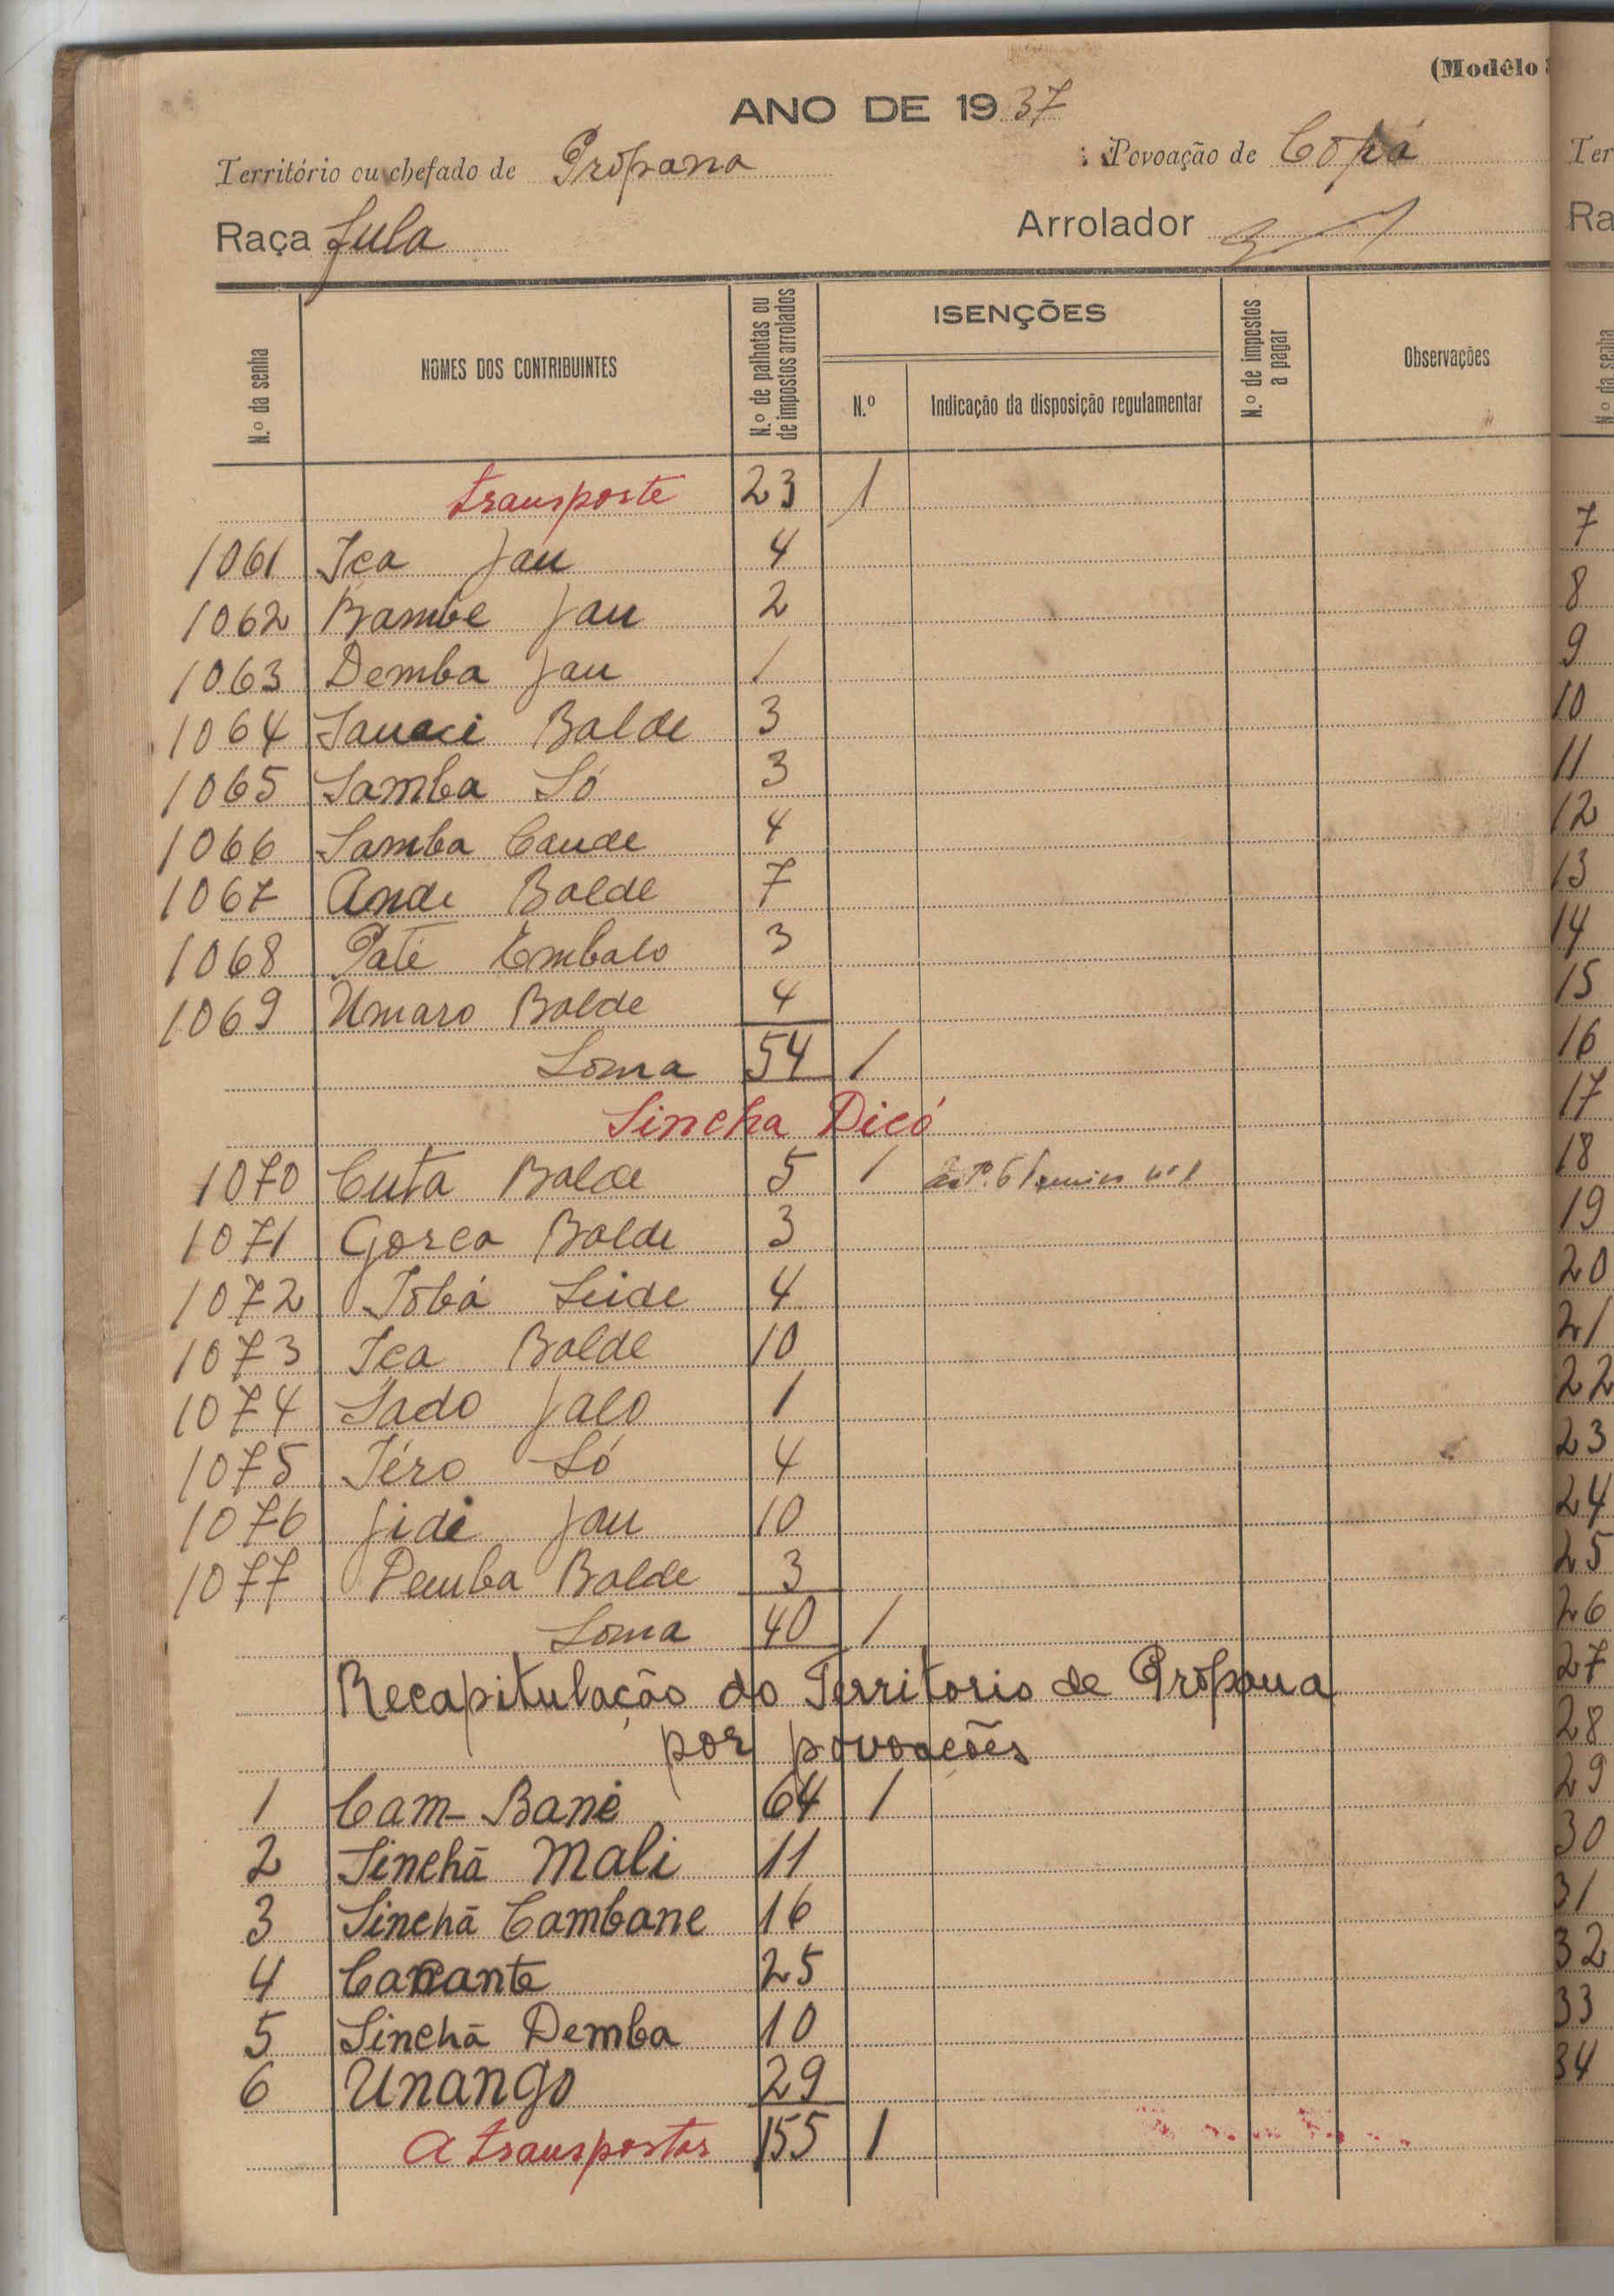 (Modêlo
ANO DE 1937
Território ou chefado de Propana Povoação de Copá
Raça fula Arrolador
N.º da senha NOMES DOS CONTRIBUINTES N.º de palhotas ou de impostos arrolados ISENÇÕES N.º de impostos a pagar Observações
N.º Indicação da disposição regulamentar
transporte 23 1
1061 Ica Jau 4
1062 Bambe Jau 2
1063 Demba Jau 1
1064 Balde 3
1065 Samba Só 3
1066 Samba Cande 4
1067 Andi Balde 7
1068 Paté Embalo 3
1069 Umaro Balde 4
Soma 54 1
Sincha Dicó
1070 Cuta Balde 5 1
1071 Gorca Balde 3
1072 Tobá Seide 4
1073 Ica Balde 10
1074 Sado Jalo 1
1075 Téro Só 4
1076 Jidi Jau 10
1077 Demba Balde 3
Soma 40 1
Recapitulação do Territorio de Propana
por povoações
1 Cam-Bané 64 1
2 Sinchã Mali 11
3 Sinchã Cambane 16
4 25
5 Sinchã Demba 10
6 Unango 29
A transportar 155 1
Ter
Ra
N.º da senha
7
8
9
10
11
12
13
14
15
16
17
18
19
20
21
22
23
24
25
26
27
28
29
30
31
32
33
34